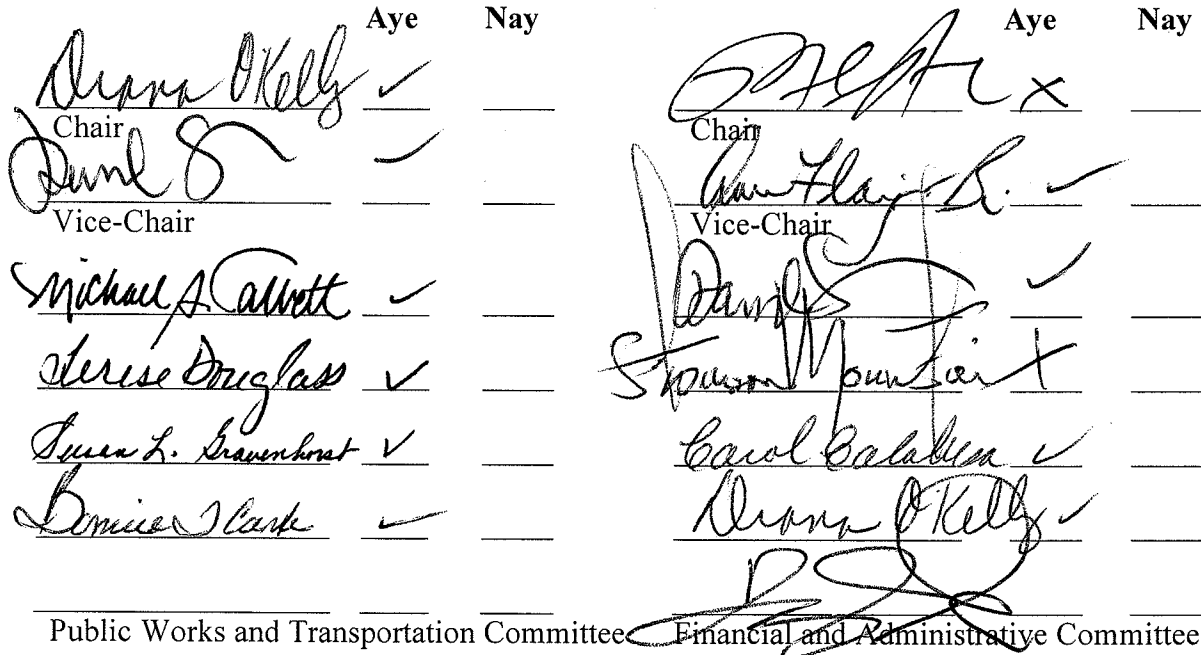 Aye Nay
Diana O'Kelly ✓
Chair
✓
Vice-Chair
Michael A. Talbett ✓
Terese Douglass ✓
Susan L. Gravenhorst ✓
Bonnie T Carter ✓
Public Works and Transportation Committee
Aye Nay
X
Chair
✓
Vice-Chair
✓
Stevenson Mountsier X
Carol Calabresa ✓
Diana O'Kelly ✓
Financial and Administrative Committee